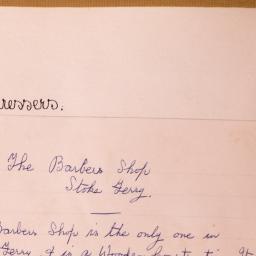 ressers.
The Barbers Shop
Stoke Ferry.
Barbers Shop is the only one in
Ferry it is a Wooden